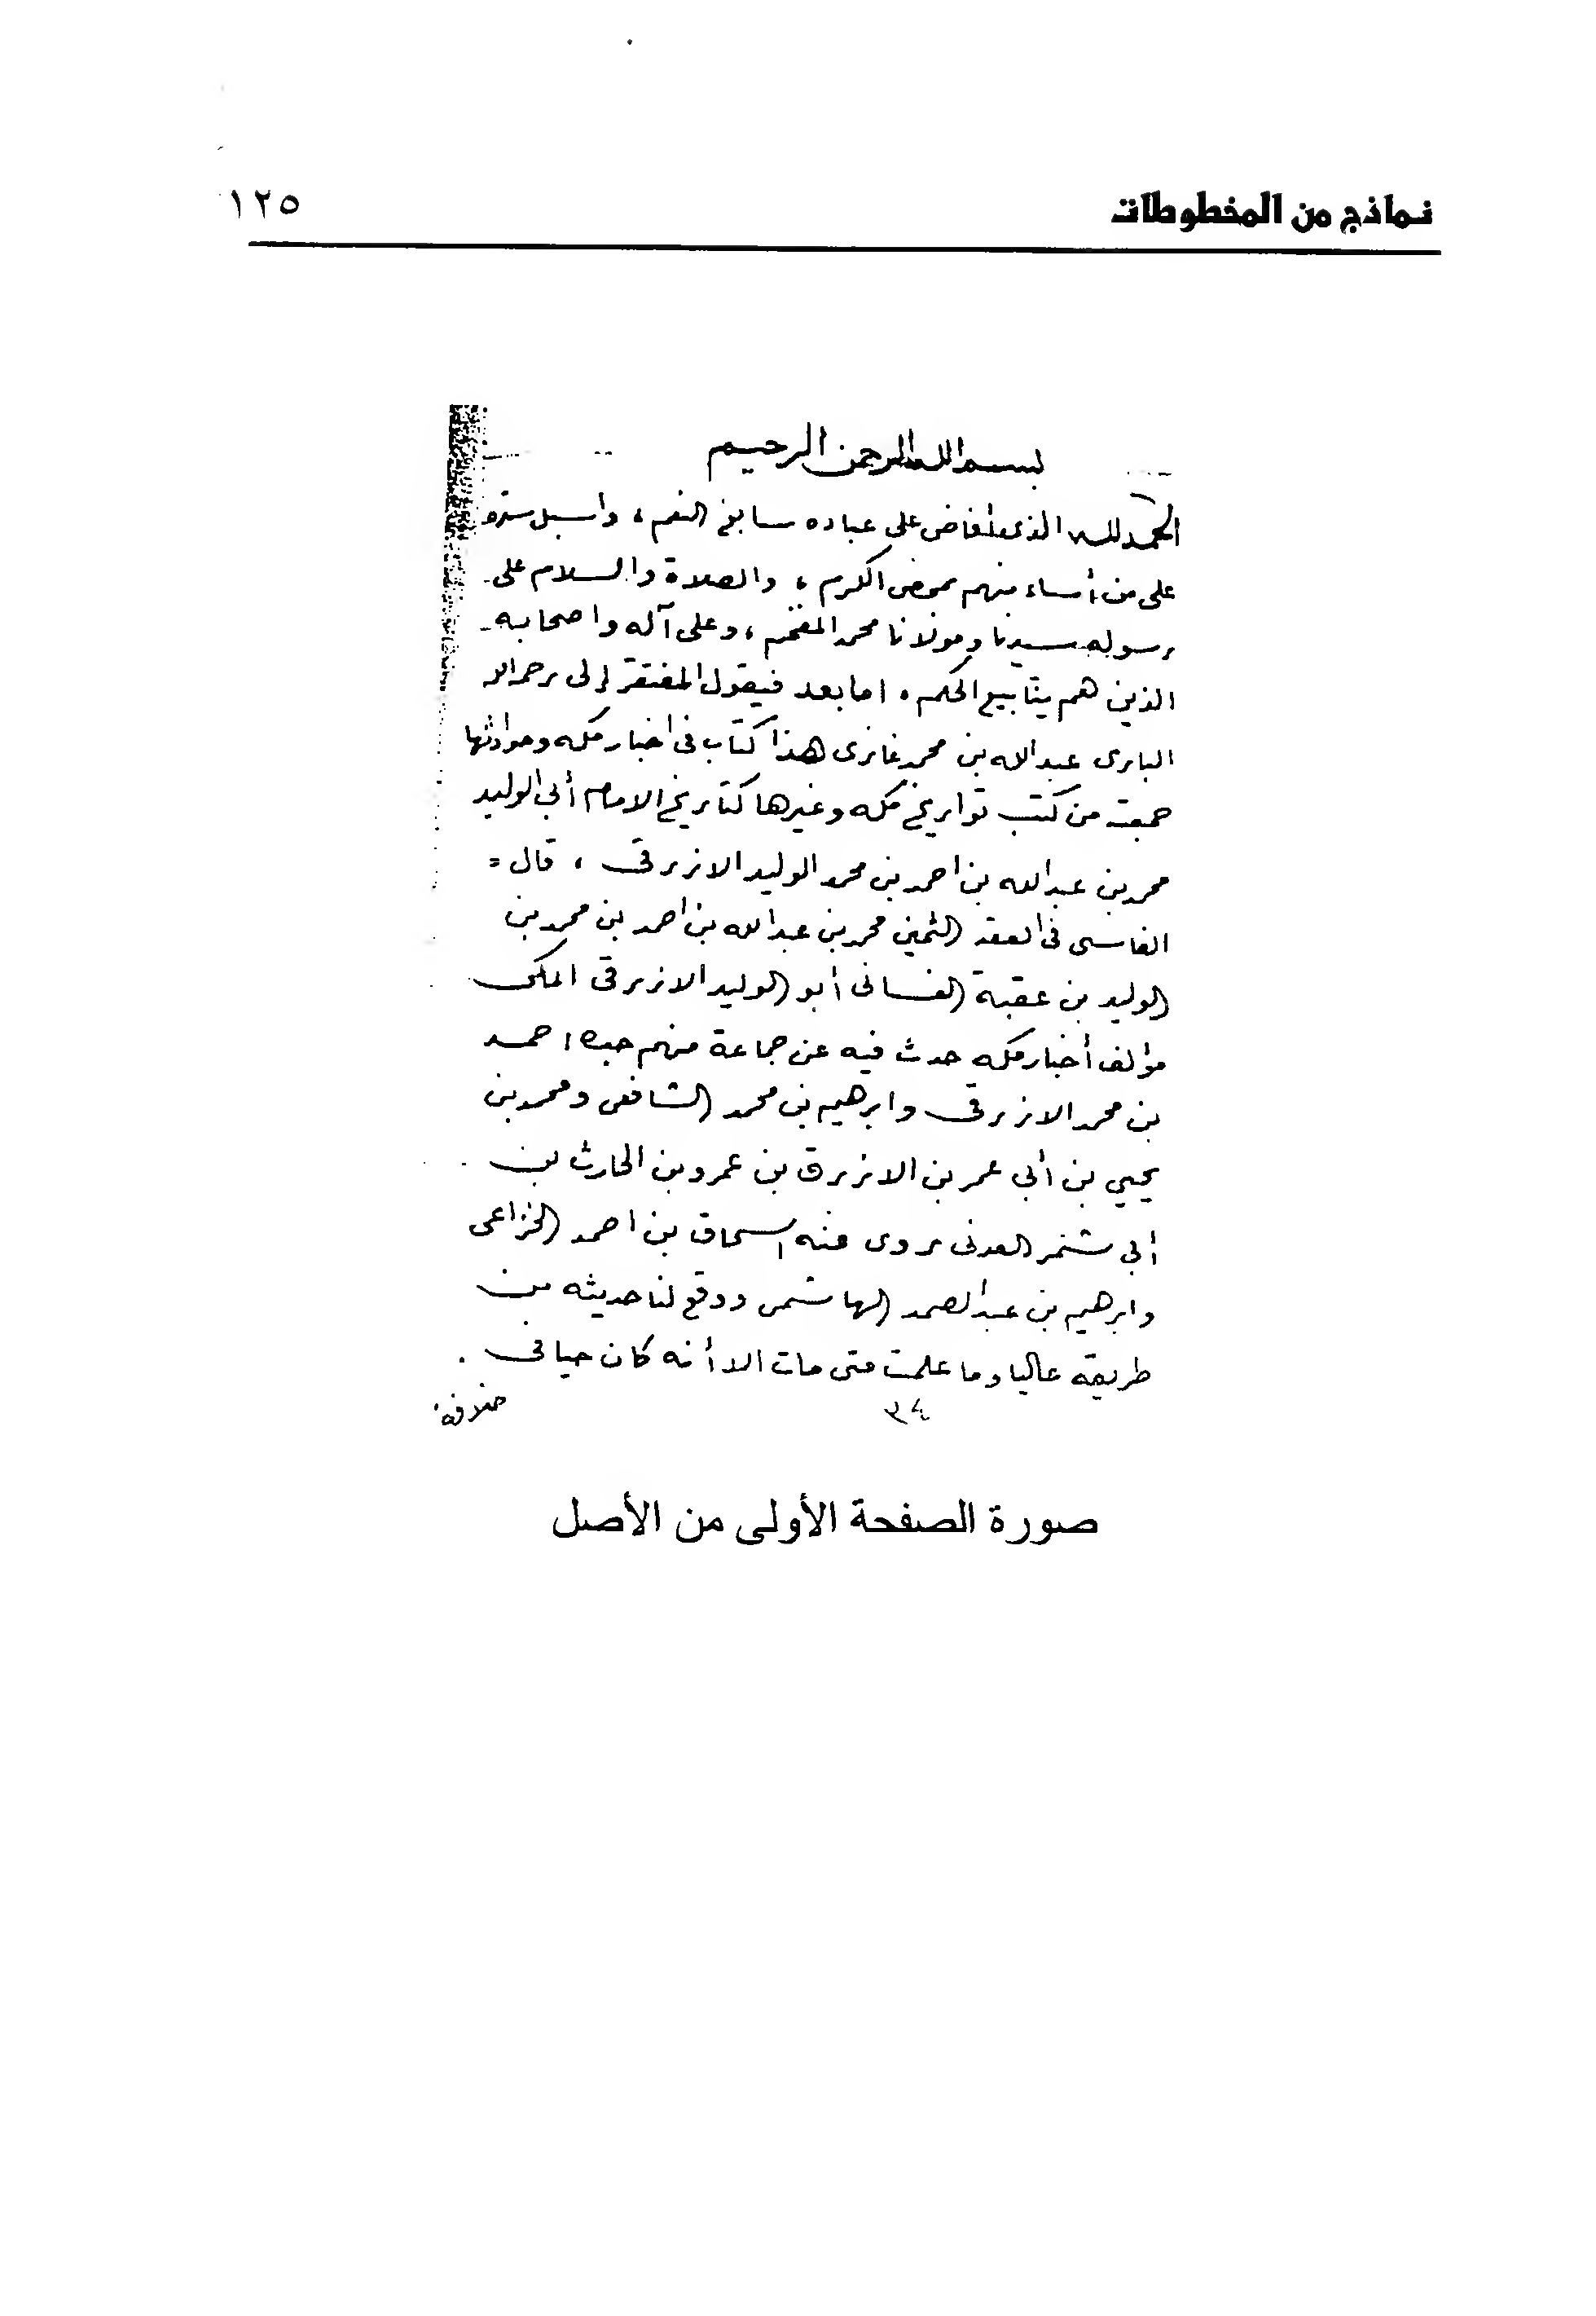 نماذج من المخطوطات
١٢٥
بسم الله الرحمن الرحيم
الحمد لله الذي أفاض على عباده سابغ النعم، وأسبل ستره
على من أساء منهم بمحض الكرم، والصلاة والسلام على
رسوله سيدنا ومولانا محمد المفخم، وعلى آله واصحابه
الذين هم ينابيع الحكم. اما بعد فيقول المفتقر إلى رحم الله
البارى عبد الله بن محمد غازى هذا كتاب فى اخبار مكه وحوادثها
جمعته من كتب تواريخ مكه وغيرها كتاريخ الامام أبى الوليد
محمد بن عبد الله بن احمد بن محمد الوليد الازرقى، قال =
الفاسى فى العقد الثمين محمد بن عبد الله بن احمد بن محمد بن
الوليد بن عقبة الغسانى أبو الوليد الازرقى المكى
مؤلف أخبار مكه حدث فيه عن جماعة منهم جده احمد
بن محمد الازرقى وابرهيم بن محمد الشافعى ومحمد بن
يحيى بن أبى عمر بن الازرق بن عمرو بن الحارث بن
أبى شمر العدنى روى عنه اسحاق بن احمد الخزاعى
وابرهيم بن عبد الصمد الهاشمى ووقع لنا حديثه من
طريقه عاليا وما علمت متى مات الا أنه كان حيا فى
خلافة
٣٤
صورة الصفحة الأولى من الأصل